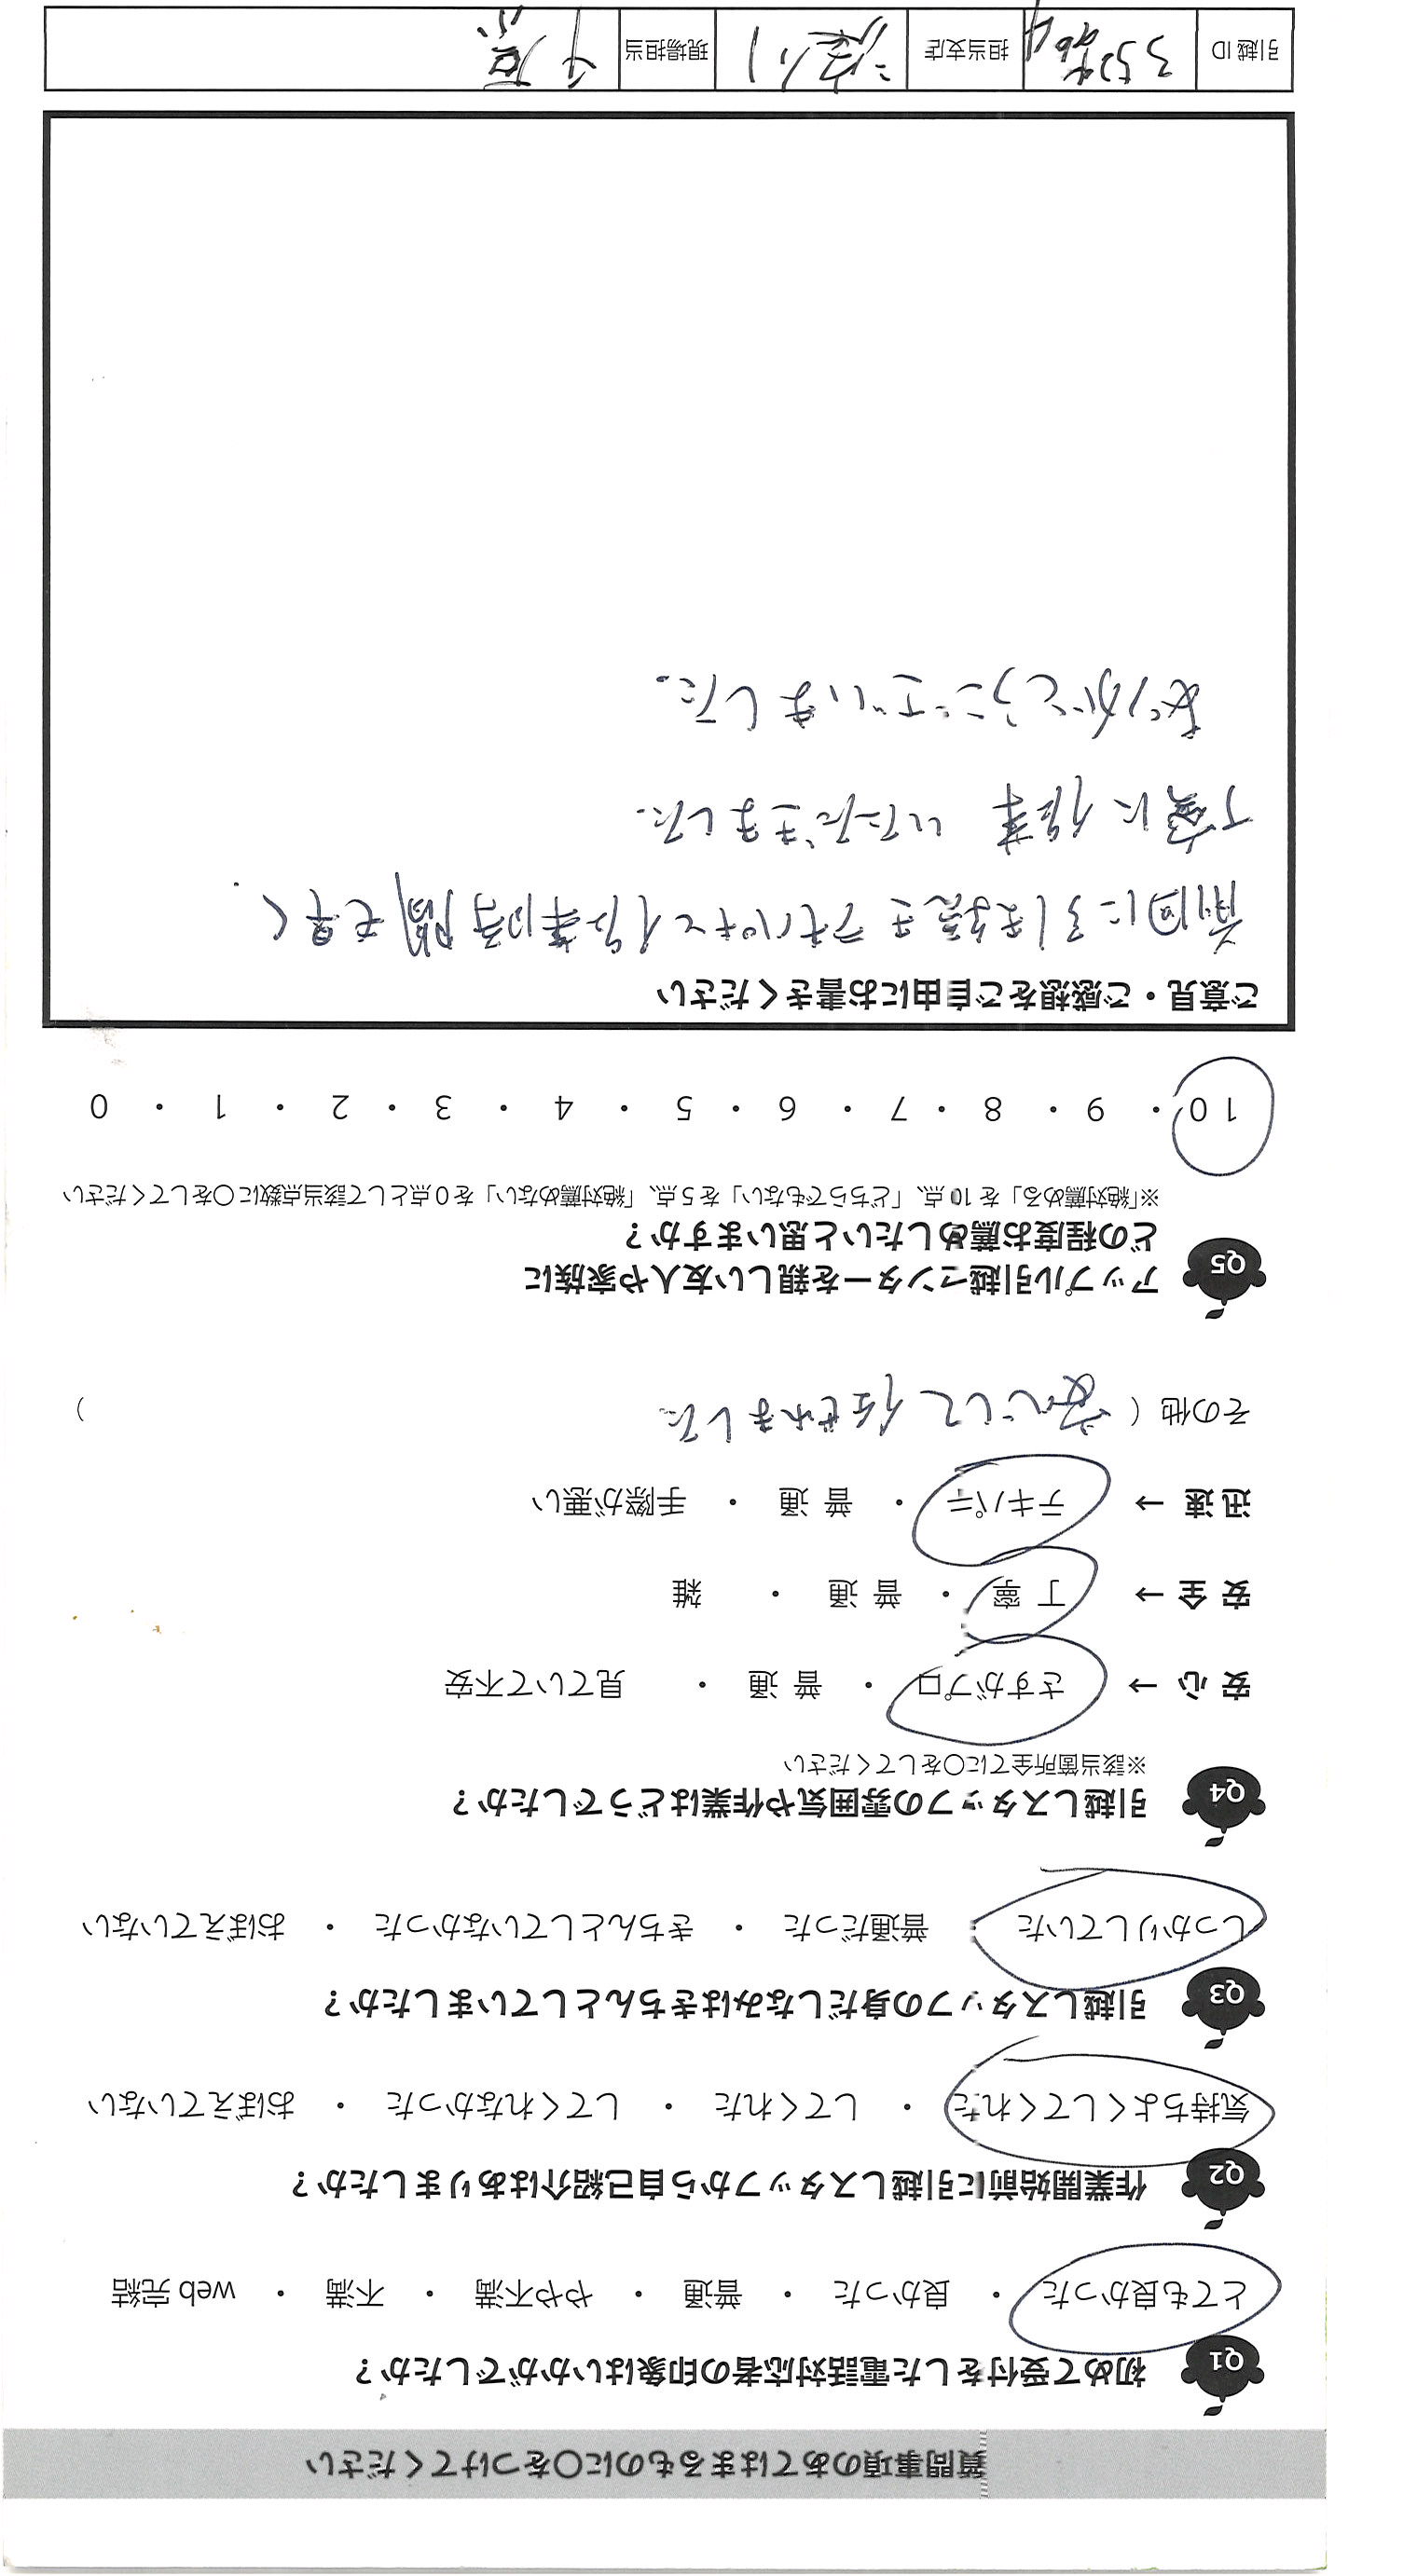 質問事項のあてはまるものに○をつけてください
Q1 初めて受付をした電話対応者の印象はいかがでしたか？
とても良かった ・ 良かった ・ 普通 ・ やや不満 ・ 不満 ・ web 完結
Q2 作業開始前に引越しスタッフから自己紹介はありましたか？
気持ちよくしてくれた ・ してくれた ・ してくれなかった ・ おぼえていない
Q3 引越しスタッフの身だしなみはきちんとしていましたか？
しっかりしていた ・ 普通だった ・ きちんとしていなかった ・ おぼえていない
Q4 引越しスタッフの雰囲気や作業はどうでしたか？
※該当箇所全てに○をしてください
安 心 → さすがプロ ・ 普 通 ・ 見ていて不安
安 全 → 丁 寧 ・ 普 通 ・ 雑
迅 速 → テキパキ ・ 普 通 ・ 手際が悪い
その他 ( 安心して任せれました )
Q5 アップル引越センターを親しい友人や家族に
どの程度お薦めしたいと思いますか？
※「絶対薦める」を 10 点、「どちらでもない」を 5 点、「絶対薦めない」を 0 点として該当点数に○をしてください
10 ・ 9 ・ 8 ・ 7 ・ 6 ・ 5 ・ 4 ・ 3 ・ 2 ・ 1 ・ 0
ご意見・ご感想をご自由にお書きください
前回に引き続きテキパキと作業時間も早く
丁寧に作業 いただきました.
ありがとうございました.
引越 ID 担当支店 現場担当